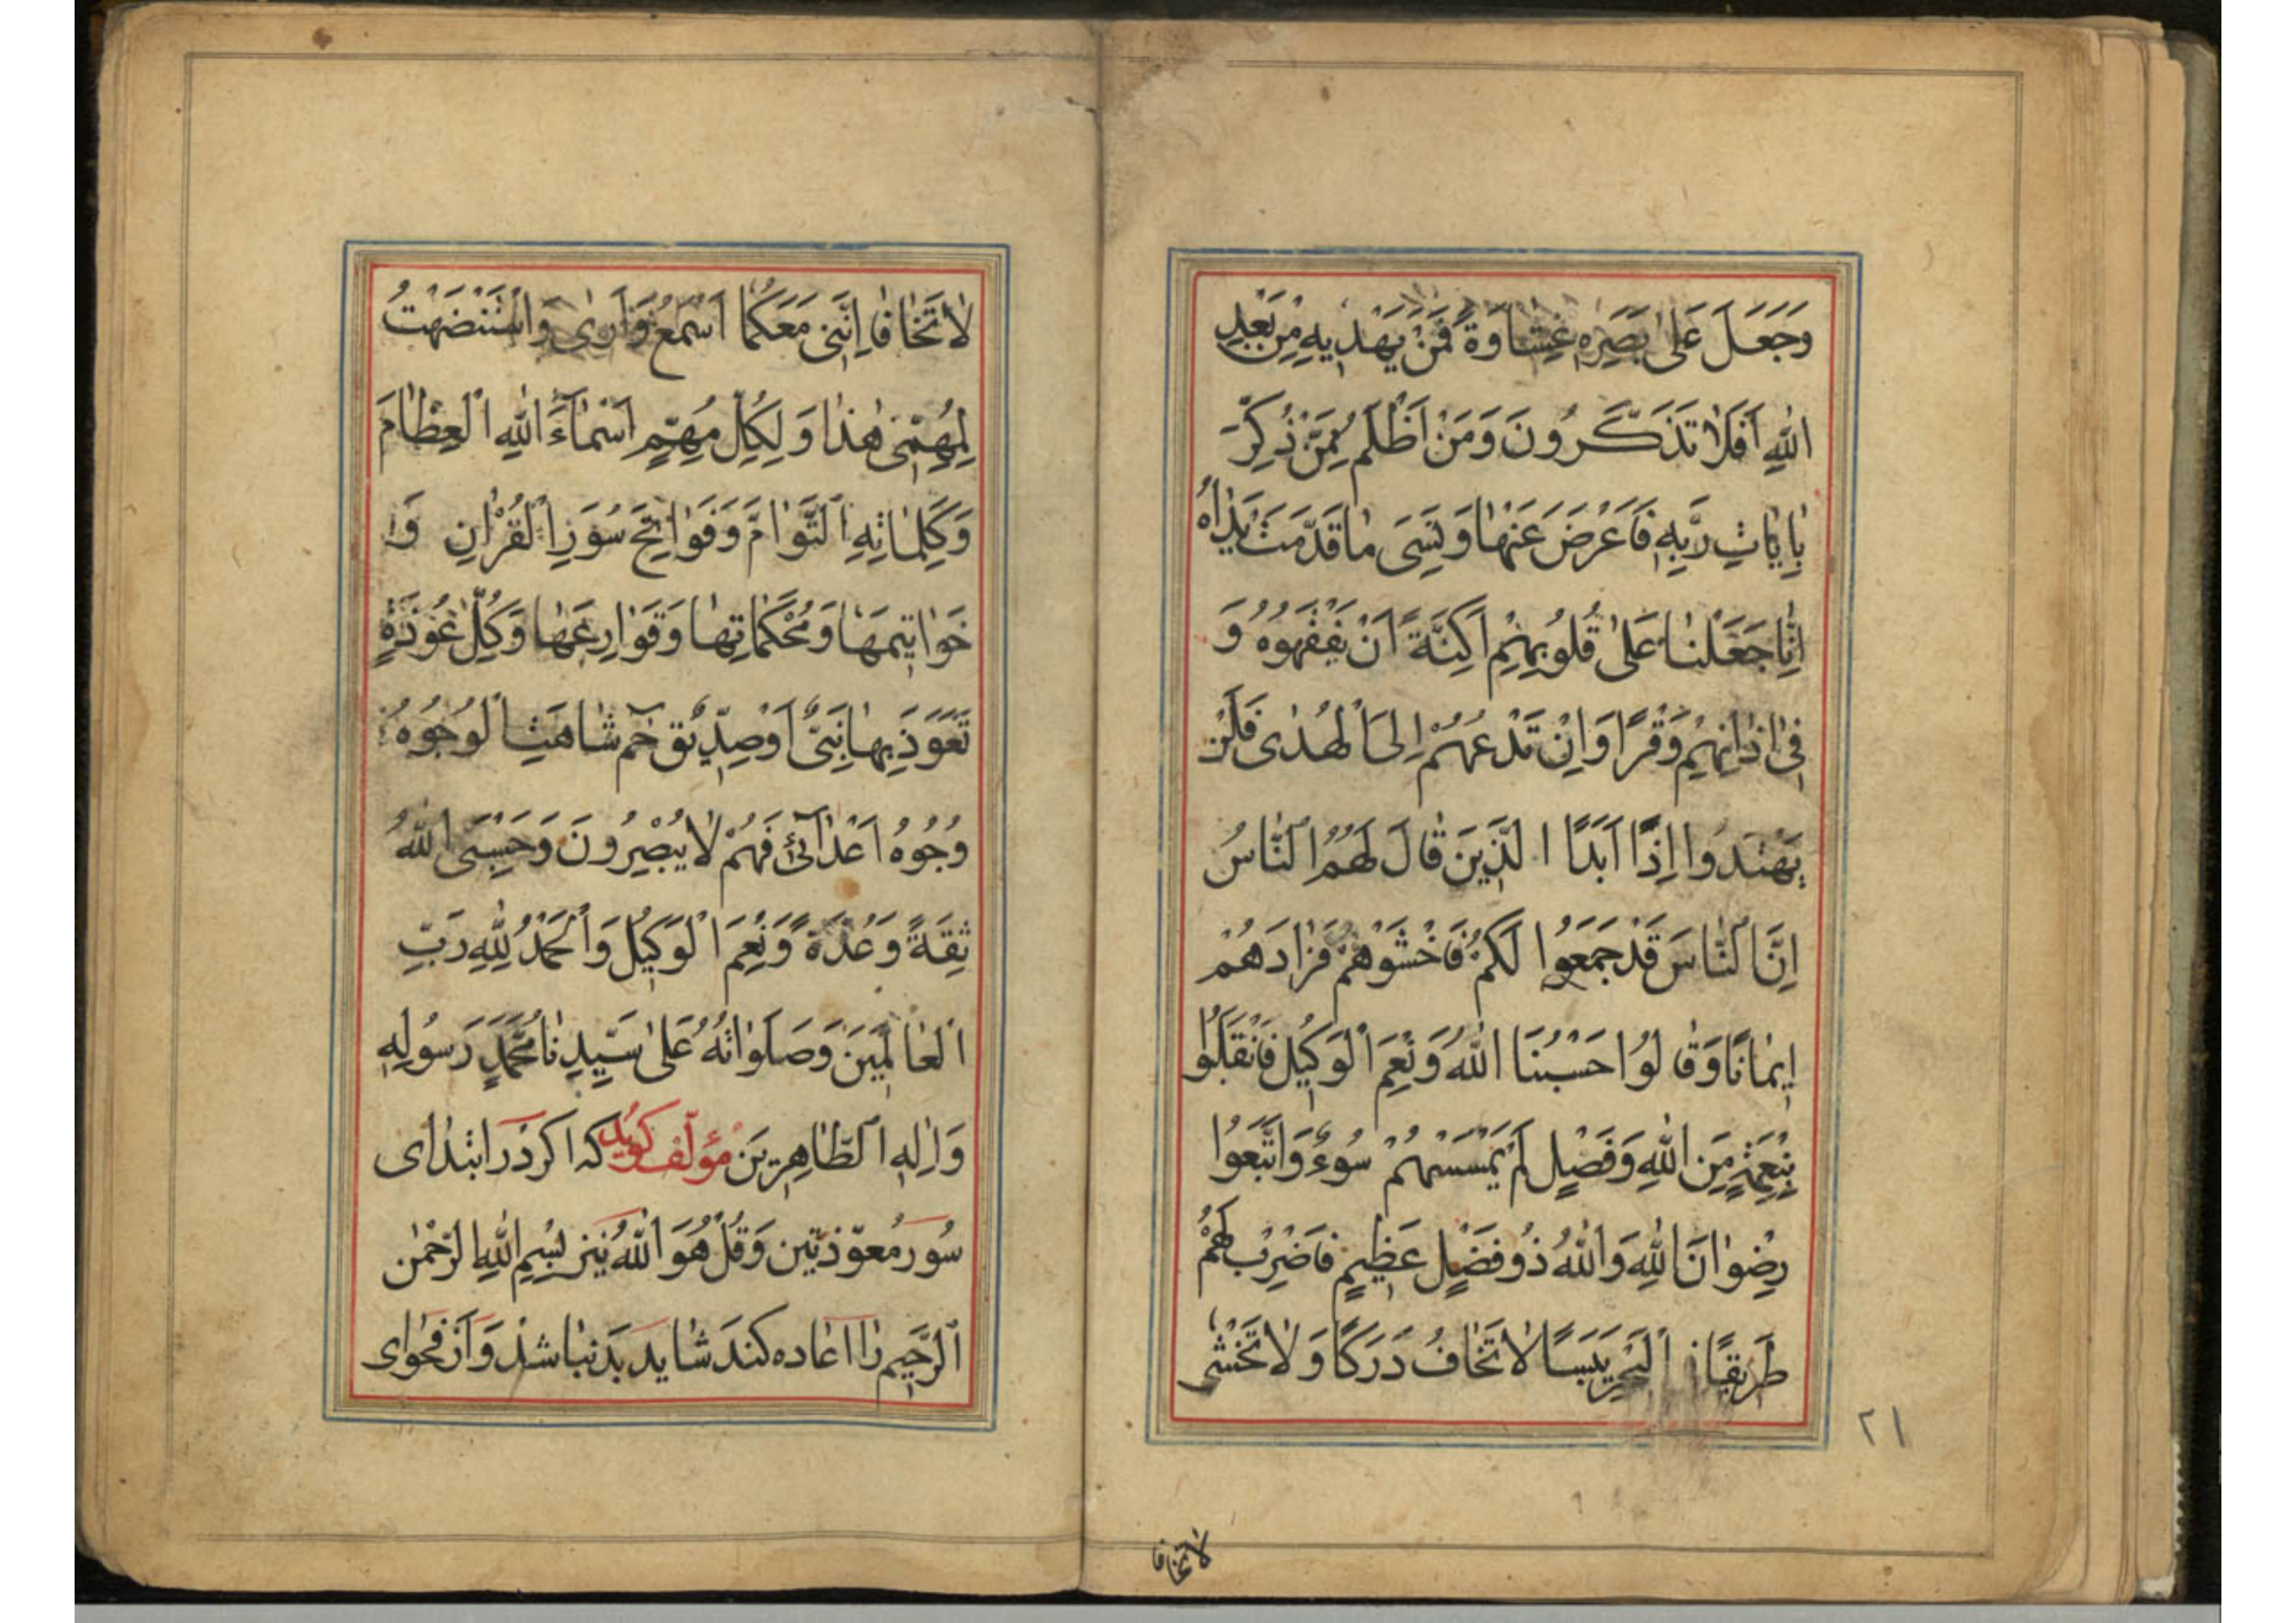 وَجَعَلَ عَلىٰ بَصَرِهِ غِشاوَةً فَمَنْ يَهْدِيهِ مِنْ بَعْدِ
اللهِ اَفَلاٰ تَذَكَّرُونَ وَمَنْ اَظْلَمُ مِمَّنْ ذُكِّرَ
بِاٰيٰاتِ رَبِّهِ فَاَعْرَضَ عَنْهٰا وَنَسِىَ مٰا قَدَّمَتْ يَدٰاهُ
اِنّٰا جَعَلْنٰا عَلىٰ قُلُوبِهِمْ اَكِنَّةً اَنْ يَفْقَهُوهُ وَ
فِى اٰذٰانِهِمْ وَقْرًا وَاِنْ تَدْعُهُمْ اِلَى الْهُدٰى فَلَنْ
يَهْتَدُوا اِذًا اَبَدًا الَّذِينَ قٰالَ لَهُمُ النّٰاسُ
اِنَّ النّٰاسَ قَدْ جَمَعُوا لَكُمْ فَاخْشَوْهُمْ فَزٰادَهُمْ
اِيمٰانًا وَقٰالُوا حَسْبُنَا اللهُ وَنِعْمَ الْوَكِيلُ فَانْقَلَبُوا
بِنِعْمَةٍ مِنَ اللهِ وَفَضْلٍ لَمْ يَمْسَسْهُمْ سُوءٌ وَاتَّبَعُوا
رِضْوٰانَ اللهِ وَاللهُ ذُو فَضْلٍ عَظِيمٍ فَاضْرِبْ لَهُمْ
طَرِيقًا الْبَحْرِ يَبَسًا لاٰ تَخٰافُ دَرَكًا وَلاٰ تَخْشٰى
٢١
لاتخافا
لاٰ تَخٰافٰا اِنَّنِى مَعَكُمٰا اَسْمَعُ وَاَرىٰ وَاسْتَنْهَضْتُ
لِمُهِمِّى هٰذٰا وَلِكُلِّ مُهِمٍّ اَسْمٰآءَ اللهِ الْعِظٰامَ
وَكَلِمٰاتِهِ التَّوٰامَّ وَفَوٰاتِحَ سُوَرِ الْقُرْاٰنِ وَ
خَوٰاتِيمَهٰا وَمُحْكَمٰاتِهٰا وَقَوٰارِعَهٰا وَكُلَّ عُوذَةٍ
تَعَوَّذَ بِهٰا نَبِىٌّ اَوْ صِدِّيقٌ حٓم شٰاهَتِ الْوُجُوهُ
وُجُوهُ اَعْدٰآئِى فَهُمْ لاٰ يُبْصِرُونَ وَحَسْبِىَ اللهُ
ثِقَةً وَعُدَّةً وَنِعْمَ الْوَكِيلُ وَالْحَمْدُ لِلّٰهِ رَبِّ
الْعٰالَمِينَ وَصَلَوٰاتُهُ عَلىٰ سَيِّدِنٰا مُحَمَّدٍ رَسُولِهِ
وَاٰلِهِ الطّٰاهِرِينَ مؤلف كويد كه اكر در ابتداى
سُوَر مُعوّذتين وَقُلْ هُوَ اللهُ نيز بِسْمِ اللهِ الرَّحْمٰنِ
الرَّحِيمِ را اعاده كند شايد بد نباشد وَاز فحواى